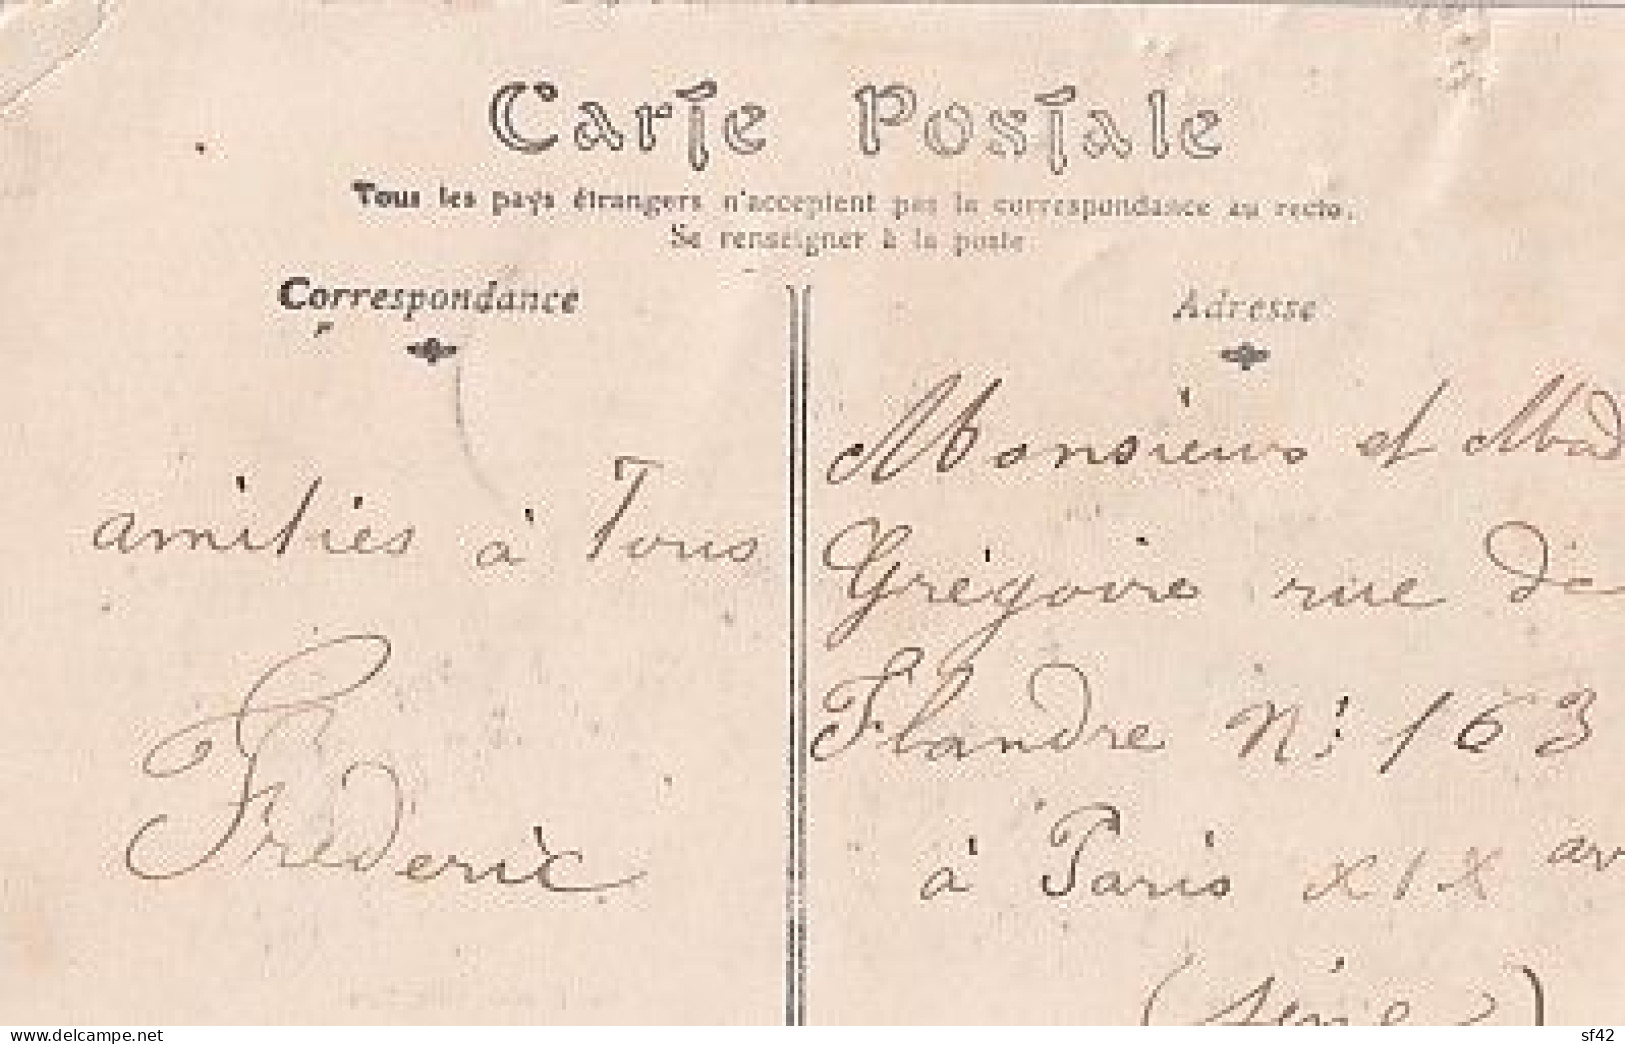 Carte Postale
Tous les pays étrangers n'acceptent pas la correspondance au recto.
Se renseigner à la poste
Correspondance
amitiés à Tous
Frédéric
Adresse
Monsieur et Mad
Grégoire rue de
Flandre N: 163
à Paris XIX ar
(Seine)
www.delcampe.net
sf42